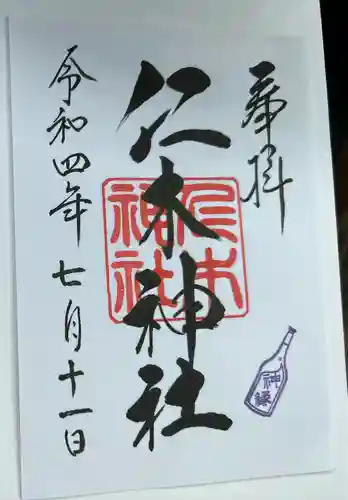 奉拝
仁木神社
仁木
神社
令和四年七月十一日
神縁